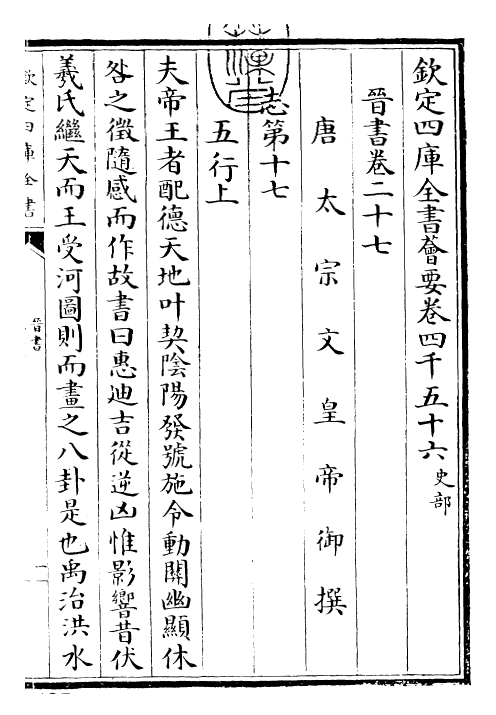 欽定四庫全書薈要卷四千五十六史部
晉書卷二十七
唐太宗文皇帝御撰
志第十七
五行上
夫帝王者配德天地叶契陰陽發號施令動關幽顯休
咎之徵隨感而作故書曰惠迪吉從逆凶惟影響昔伏
羲氏繼天而王受河圖則而畫之八卦是也禹治洪水
欽定四庫全書
晉書